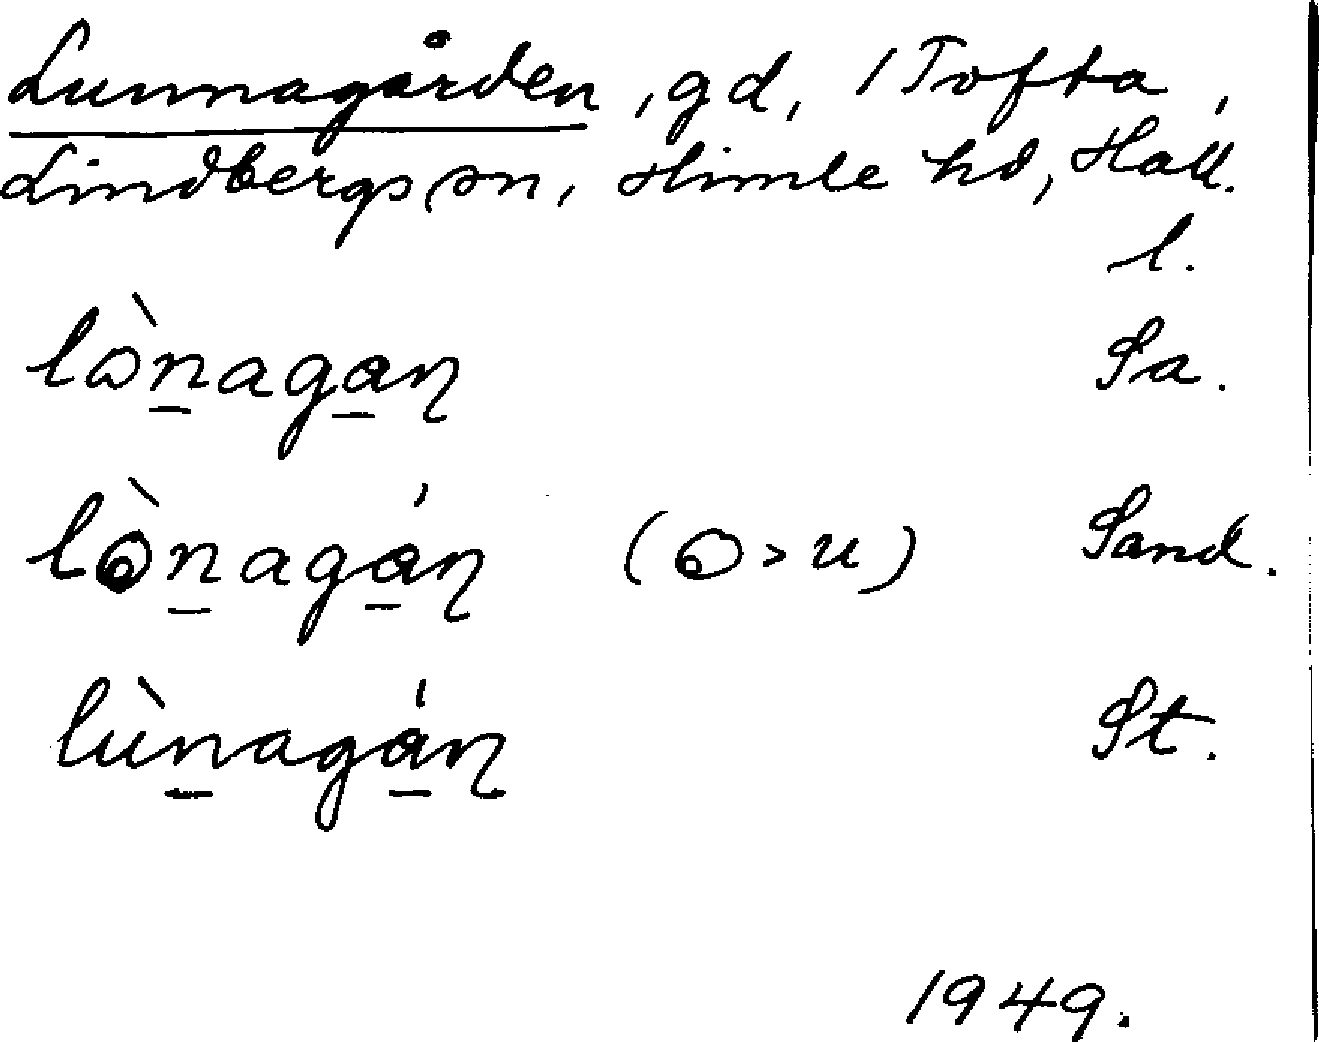 Lunnagården, gd, 1 Tofta,
Lindbergs sn, Himle hd, Hall.
l.
lò̀nagan̡ Sa.
lò̀nagán̡ (ɷ>u) Sand.
lùnagán̡ St.
1949.